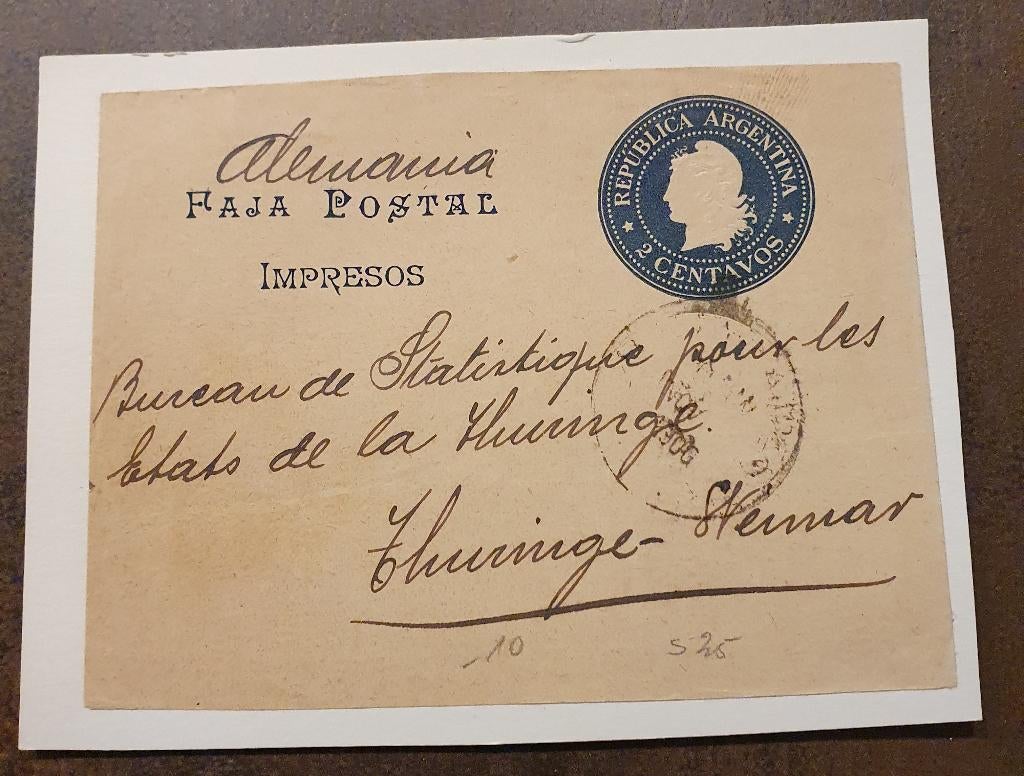 Alemania
FAJA POSTAL
IMPRESOS
REPUBLICA ARGENTINA
2 CENTAVOS
Bureau de Statistique pour les
Etats de la Thuringe.
Thuringe - Weimar
1900
10
S 25